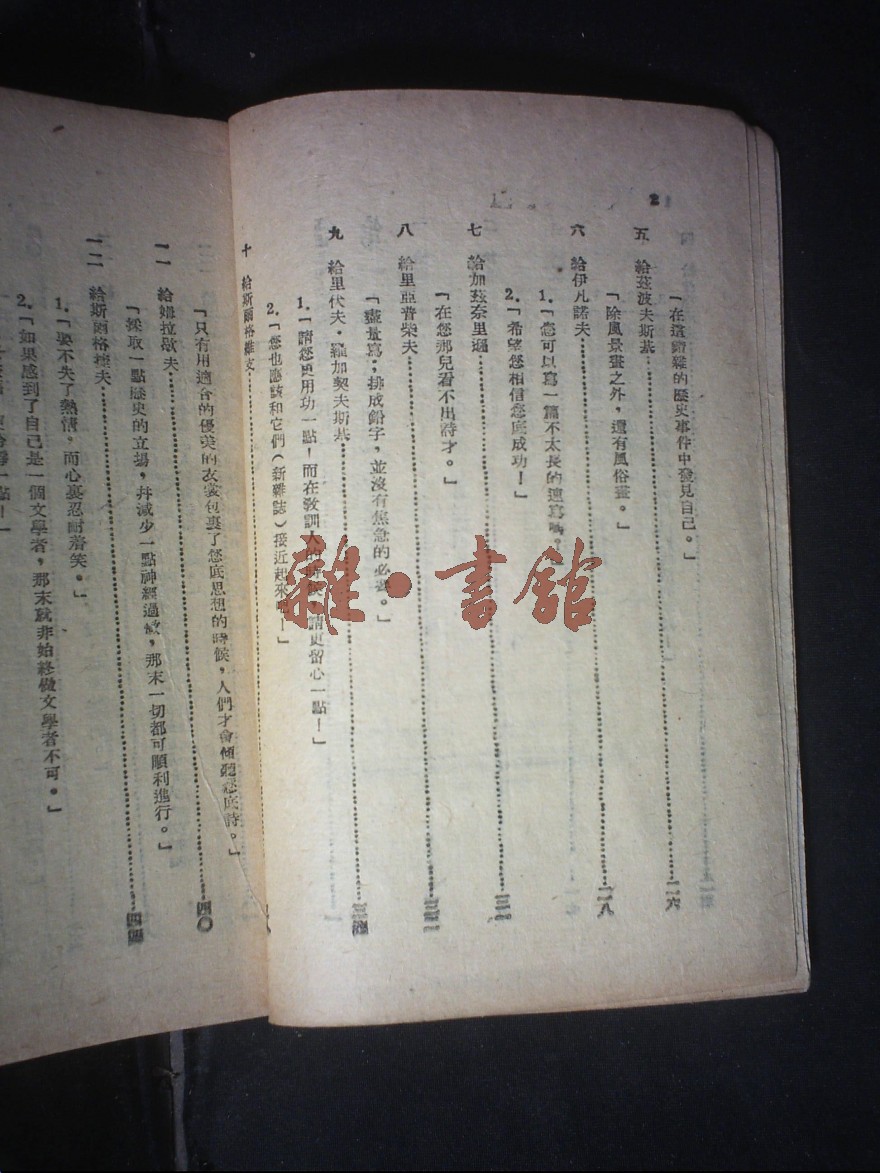 2
「在這錯雜的歷史事件中發見自己。」
五 給茲波夫斯基……二六
「除風景畫之外，還有風俗畫。」
六 給伊凡諾夫……二八
1.「您可以寫一篇不太長的速寫
2.「希望您相信您底成功！」
七 給加茲奈里遜……三一
「在您那兒看不出詩才。」
八 給里亞普柴夫……三三
「儘量寫；排成鉛字，並沒有焦急的必要。」
九 給里伏夫・羅加契夫斯基……
1.「請您更用功一點！而在教訓人的時候，請更留心一點！」
2.「您也應該和它們（新雜誌）接近起來吧！」
十 給斯爾格維支……
「只有用適合的優美的衣裳包裹了您底思想的時候，人們才會傾聽您底詩。」
一一 給姆拉歇夫……四〇
「採取一點歷史的立場，并減少一點神經過敏，那末一切都可順利進行。」
一二 給斯爾格維夫……四四
1.「要不失了熱情，而心裏忍耐着笑。」
2.「如果感到了自己是一個文學者，那末就非始終做文學者不可。」
一點！」
雜・書館